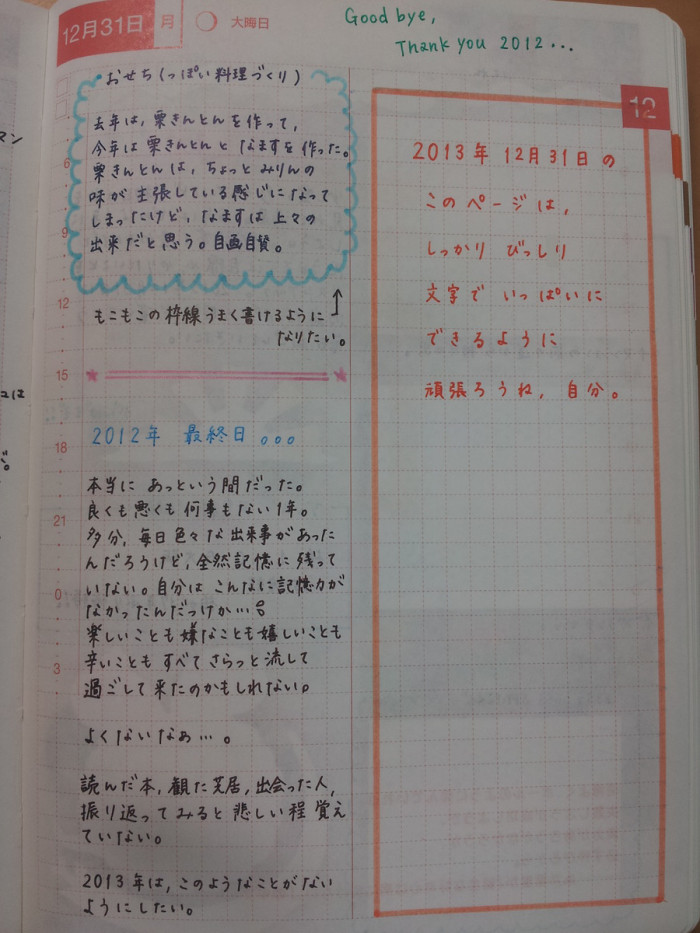 12月31日 月 大晦日
Good bye,
Thank you 2012...
おせち(っぽい料理づくり)
去年は,栗きんとんを作って,
今年は栗きんとんとなますを作った。
栗きんとんは,ちょっとみりんの
味が主張している感じになって
しまったけど,なますは上々の
出来だと思う。自画自賛。
もこもこの枠線うまく書けるように
なりたい。
2012年 最終日。。。
本当にあっという間だった。
良くも悪くも何事もない1年。
多分,毎日色々な出来事があった
んだろうけど,全然記憶に残って
いない。自分はこんなに記憶力が
なかったんだっけか…。
楽しいことも嫌なことも嬉しいことも
辛いこともすべてさらっと流して
過ごして来たのかもしれない。
よくないなぁ…。
読んだ本,観た芝居,出会った人,
振り返ってみると悲しい程覚え
ていない。
2013年は,このようなことがない
ようにしたい。
12
2013年12月31日の
このページは,
しっかり びっしり
文字で いっぱいに
できるように
頑張ろうね,自分。
6
9
12
15
18
21
0
3
マン